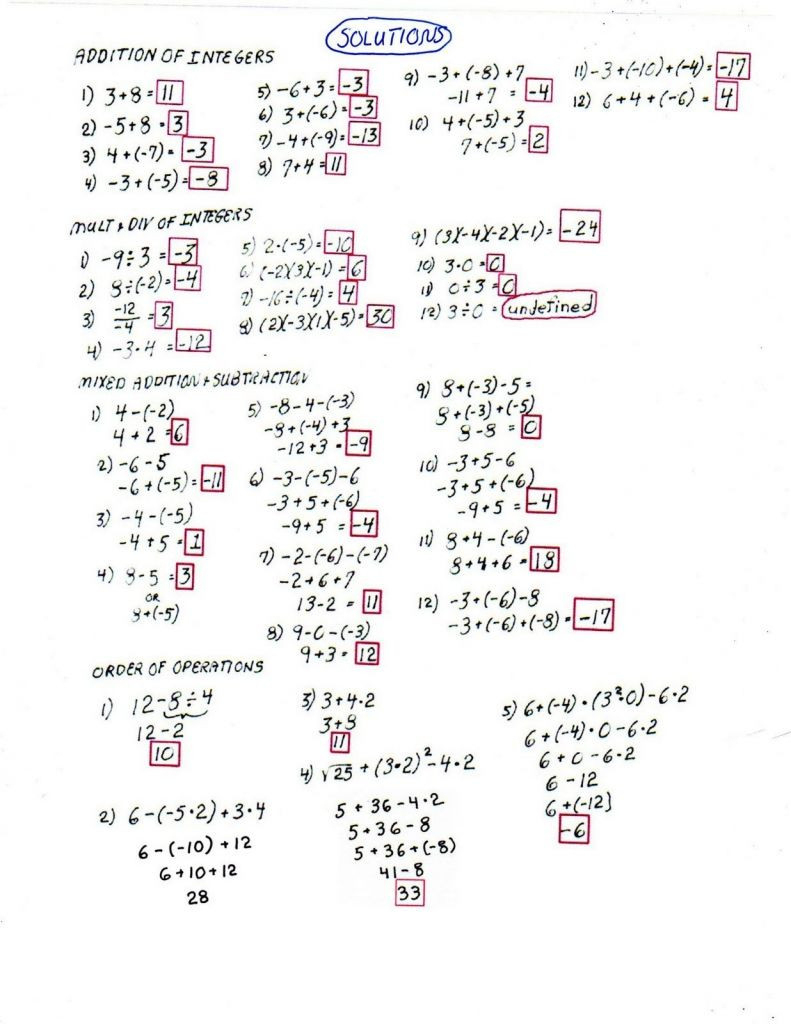 SOLUTIONS
ADDITION OF INTEGERS
1) 3+8 = 11
2) -5+8 = 3
3) 4+(-7) = -3
4) -3+(-5) = -8
5) -6+3 = -3
6) 3+(-6) = -3
7) -4+(-9) = -13
8) 7+4 = 11
9) -3+(-8)+7
-11+7 = -4
10) 4+(-5)+3
7+(-5) = 2
11) -3+(-10)+(-4) = -17
12) 6+4+(-6) = 4
MULT + DIV OF INTEGERS
1) -9÷3 = -3
2) 8÷(-2) = -4
3) -12/-4 = 3
4) -3·4 = -12
5) 2·(-5) = -10
6) (-2)(3)(-1) = 6
7) -16÷(-4) = 4
8) (2)(-3)(1)(-5) = 30
9) (3)(-4)(-2)(-1) = -24
10) 3·0 = 0
11) 0÷3 = 0
12) 3÷0 = undefined
MIXED ADDITION + SUBTRACTION
1) 4-(-2)
4+2 = 6
2) -6-5
-6+(-5) = -11
3) -4-(-5)
-4+5 = 1
4) 8-5 = 3
OR
8+(-5)
5) -8-4-(-3)
-8+(-4)+3
-12+3 = -9
6) -3-(-5)-6
-3+5+(-6)
-9+5 = -4
7) -2-(-6)-(-7)
-2+6+7
13-2 = 11
8) 9-0-(-3)
9+3 = 12
9) 8+(-3)-5 =
8+(-3)+(-5)
8-8 = 0
10) -3+5-6
-3+5+(-6)
-9+5 = -4
11) 8+4-(-6)
8+4+6 = 18
12) -3+(-6)-8
-3+(-6)+(-8) = -17
ORDER OF OPERATIONS
1) 12-8÷4
12-2
10
2) 6-(-5·2)+3·4
6-(-10)+12
6+10+12
28
3) 3+4·2
3+8
11
4) √25 + (3·2)² - 4·2
5+36-4·2
5+36-8
5+36+(-8)
41-8
33
5) 6+(-4)·(3²·0)-6·2
6+(-4)·0-6·2
6+0-6·2
6-12
6+(-12)
-6